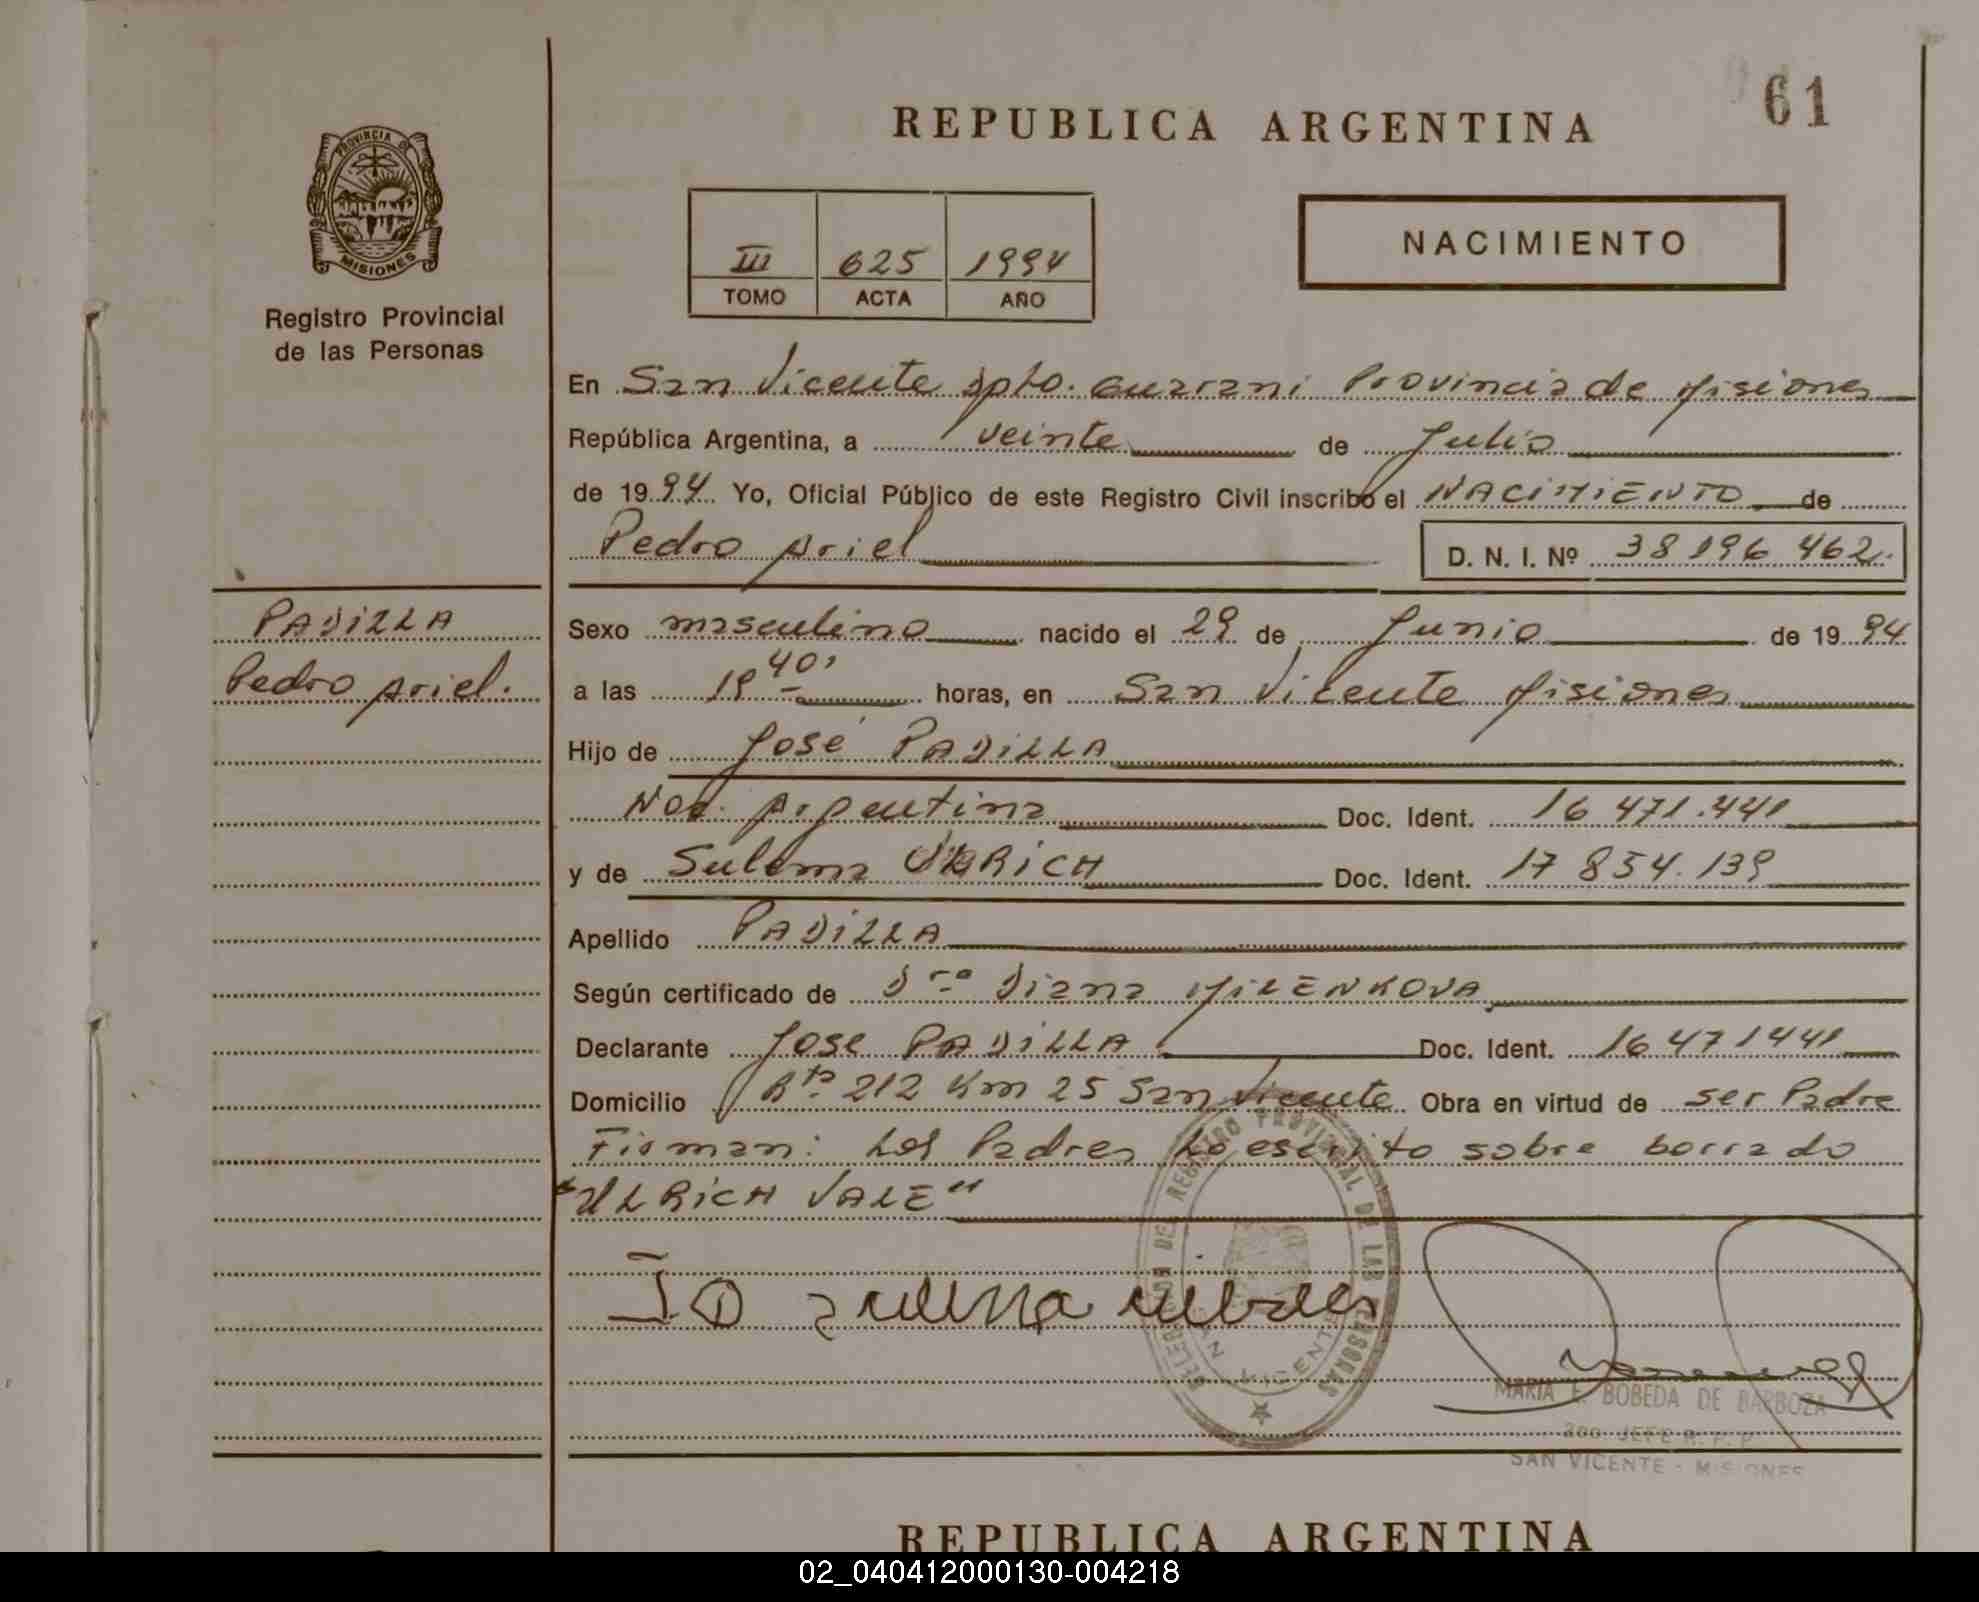 61
REPUBLICA ARGENTINA
PROVINCIA DE
MISIONES
Registro Provincial
de las Personas
III 625 1994
TOMO ACTA AÑO
NACIMIENTO
En San Vicente Dpto. Guarani Provincia de Misiones
República Argentina, a veinte de Julio
de 1994 Yo, Oficial Público de este Registro Civil inscribo el NACIMIENTO de
Pedro Ariel D. N. I. Nº 38 196 462.
PADILLA
Pedro Ariel.
Sexo masculino nacido el 29 de Junio de 1994
a las 19 40' horas, en San Vicente Misiones
Hijo de José PADILLA
Nac. Argentina Doc. Ident. 16 471.441
y de Sulema ULRICH Doc. Ident. 17 854.139
Apellido PADILLA
Según certificado de Dra Diana MILENKOVA
Declarante José PADILLA Doc. Ident. 16 471441
Domicilio Rta. 212 Km 25 San Vicente Obra en virtud de ser Padre
Firman: Los Padres Lo escrito sobre borrado
"ULRICH VALE"
DEL REGISTRO PROVINCIAL DE LAS PERSONAS
SAN VICENTE
MARIA E. BOBEDA DE BARBOZA
JEFE R. P. P.
SAN VICENTE - MISIONES
REPUBLICA ARGENTINA
02_040412000130-004218